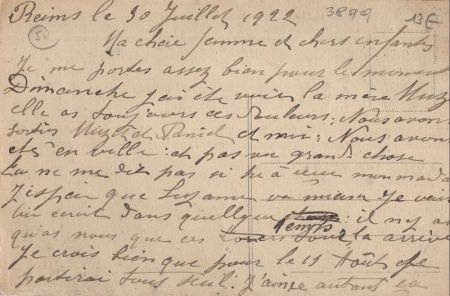 Reims le 30 Juillet 1922
3899
17€
5
Ma chère femme et chers enfants
Je me portes assez bien pour le moment
Dimanche j'ai été voir la mère Muz
elle as toujours ces douleurs; Nous avons
sortis Muz et Daniel et moi; Nous avons
été en ville: et pas vu grand chose
tu ne me dit pas si tu à reçu mon manda
J'espère que Suzanne va mieux Je vais
lui écrit dans quelque temps: il n'y as
qu'as nous que ces
pour la arrive
Je crois bien que pour le 11 Août je
partirai tous seul: J'aime autant ca